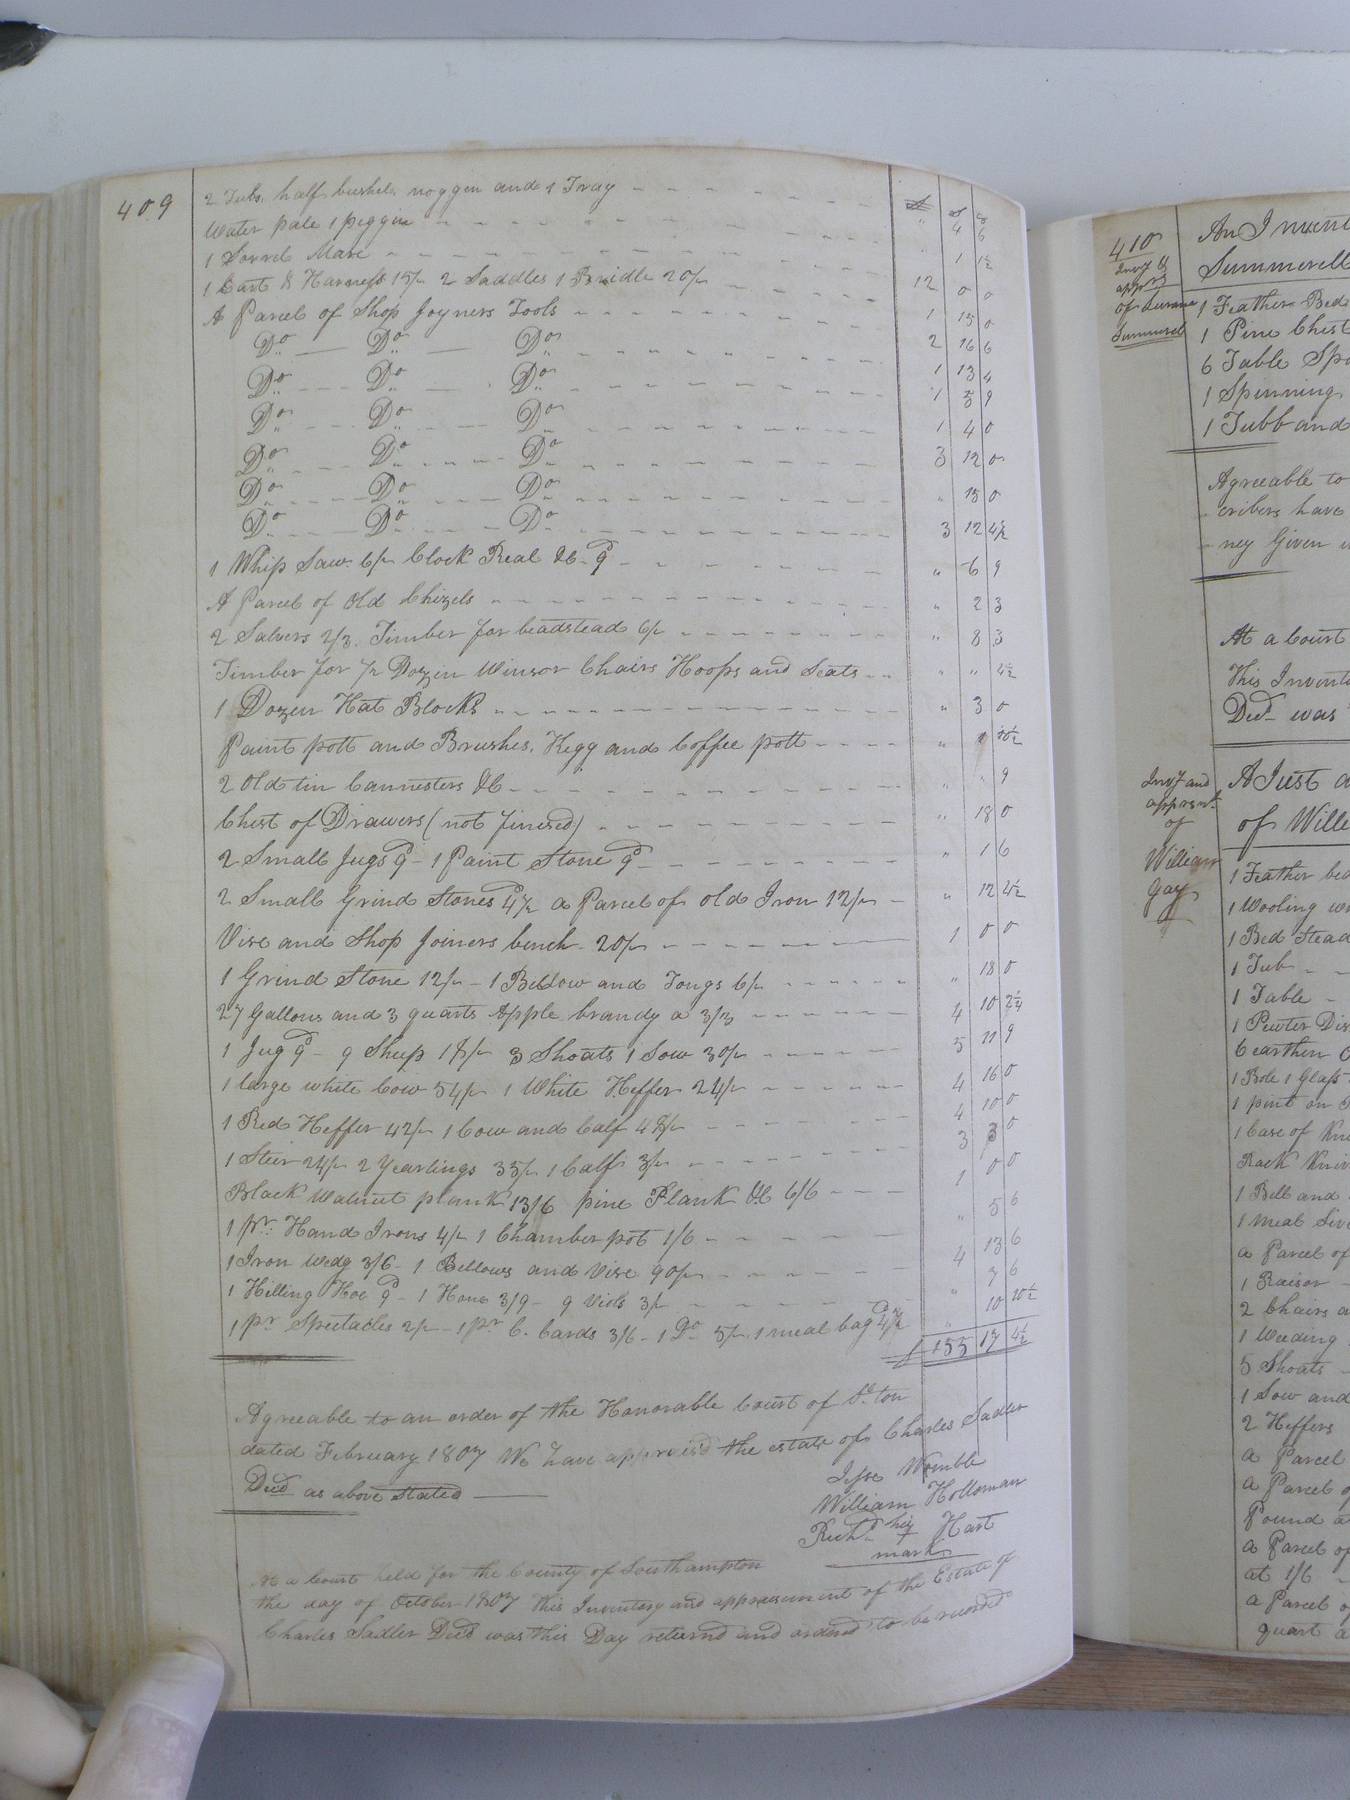 409
£ S D
2 Tubs, half bushel, noggen and 1 Tray " 4 6
Water pale 1 piggin " 1 1½
1 Sorrel Mare 12 0 0
1 Cart & Harness 15/ 2 Saddles 1 Bridle 20/ 1 15 0
A Parcel of Shop Joyners Tools 2 16 6
Do Do Do 1 13 4
Do Do Do 1 5 9
Do Do Do 1 4 0
Do Do Do 3 12 0
Do Do Do " 15 0
Do Do Do 3 12 4½
1 Whip Saw 6/ Clock Real &c 9d " 6 9
A Parcel of Old Chizels " 2 3
2 Salvers 2/3. Timber for beadstead 6/ " 8 3
Timber for ½ Dozen Winsor Chairs Hoops and Seats " "
1 Dozen Hat Blocks " 3 0
Paint pott and Brushes, Kegg and Coffee pott " 1 10½
2 Old tin Cannesters &c " " 9
Chest of Drawers (not finised) " 18 0
2 Small Jugs 9d - 1 Paint Stone 9d " 1 6
2 Small Grind Stones 4½d a Parcel of old Iron 12/ " 12 4½
Vise and Shop Joiners bench 20/ 1 0 0
1 Grind Stone 12/ - 1 Bellow and Tongs 6/ " 18 0
27 Gallons and 3 quarts Apple brandy a 3/3 4 10 2¼
1 Jug 9d - 9 Sheep 3 Shoats 1 Sow 30/ 5 11 9
1 large white Cow 54/ 1 White Heffer 24/ 4 16 0
1 Red Heffer 42/ 1 Cow and Calf 48/ 4 10 0
1 Steer 24/ 2 Yearlings 35/ 1 Calf 3/ 3 3 0
Black Walnut plank 13/6 pine Plank &c 6/6 1 0 0
1 pr. Hand Irons 4/ 1 Chamber pot 1/6 " 5 6
1 Iron Wedg 3/6 - 1 Bellows and Vise 90/ 4 13 6
1 Hilling Hoe 9d - 1 Hone 3/9 - 9 Viols 3/ " 7 6
1 pr Spectacles 2/ - 1 pr C. Cards 3/6 - 1 Do 5/ 1 meal bag 4½d " 10 10½
£ 155 17 4½
Agreeable to an order of the Honorable Court of S.ton
dated February 1807 We have appraised the estate of Charles Sadler
Decd as above Stated
Jesse Womble
William Holloman
Richd his Hart
mark
At a Court held for the County of Southampton
the day of October 1807 This Inventory and appraisement of the Estate of
Charles Sadler Decd was this Day returnd and ordered to be recorded
410
Invy &
apprt
of
Summerel
An Invent
Summerell
1 Feather Bed
1 Pine Chest
6 Table Spo
1 Spinning
1 Tubb and
Agreeable to
cribers have
ney Given
At a Court
This Invent
Decd was
Invy and
apprsmt
of
William
Gay
A Just a
of Wille
1 Feather bed
1 Wooling w
1 Bed Stead
1 Tub
1 Table
1 Pewter Dis
6 earthen
1 Bole 1 Glass
1 pint
1 Case of Kni
Rack Kniv
1 Bell and
1 meal Siv
a Parcel of
1 Raisor
2 Chairs a
1 Weeding
5 Shoats
1 Sow and
2 Heffers
a Parcel
a Parcel of
Pound a
a Parcel of
at 1/6
a Parcel of
quart a